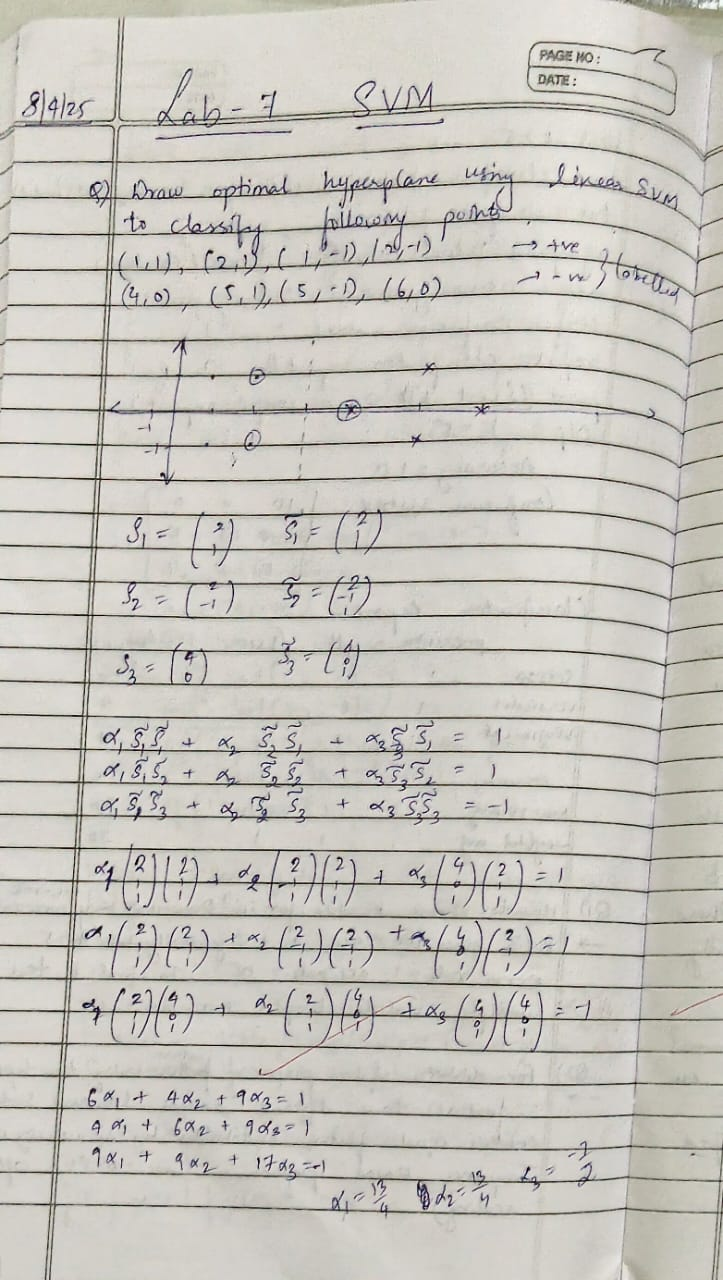 PAGE NO:
DATE:
8/4/25 Lab - 7 SVM
Q) Draw optimal hyperplane using linear SVM
to classify following points
(1,1), (2,1), (1,-1), (2,-1) → +ve
(4,0), (5,1), (5,-1), (6,0) → -ve } labelled
-1
-1
S₁ = (2 1) S̃₁ = (2 1 1)
S₂ = (2 -1) S̃₂ = (2 -1 1)
S₃ = (4 0) S̃₃ = (4 0 1)
α₁ S̃₁S̃₁ + α₂ S̃₂S̃₁ + α₃ S̃₃S̃₁ = 1
α₁ S̃₁S̃₂ + α₂ S̃₂S̃₂ + α₃ S̃₃S̃₂ = 1
α₁ S̃₁S̃₃ + α₂ S̃₂S̃₃ + α₃ S̃₃S̃₃ = -1
α₁ (2 1 1)(2 1 1) + α₂ (2 -1 1)(2 1 1) + α₃ (4 0 1)(2 1 1) = 1
α₁ (2 1 1)(2 -1 1) + α₂ (2 -1 1)(2 -1 1) + α₃ (4 0 1)(2 -1 1) = 1
α₁ (2 1 1)(4 0 1) + α₂ (2 -1 1)(4 0 1) + α₃ (4 0 1)(4 0 1) = -1
6α₁ + 4α₂ + 9α₃ = 1
4α₁ + 6α₂ + 9α₃ = 1
9α₁ + 9α₂ + 17α₃ = -1
α₁ = 13/4 α₂ = 13/4 α₃ = -7/2